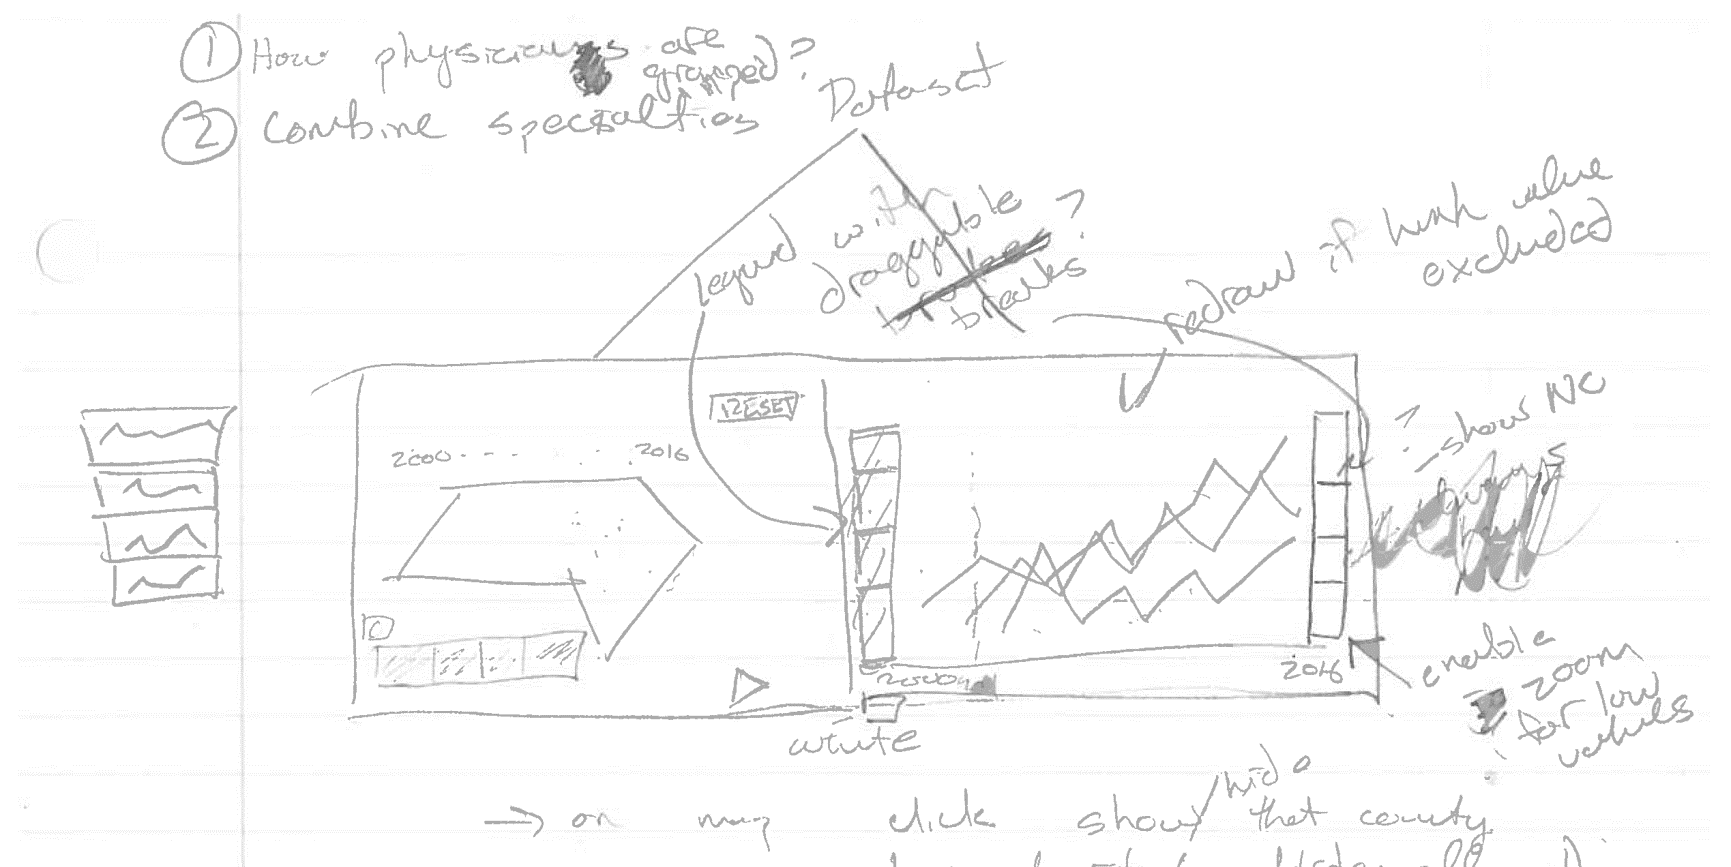 ① How physicians are
grouped?
② Combine specialties
Dataset
Legend with
draggable
breaks
?
redraw if high value
excluded
RESET
2000 - - -
2016
?
show NC
2000
2016
white
enable
zoom
for low
values
→ on map click show/hide that county